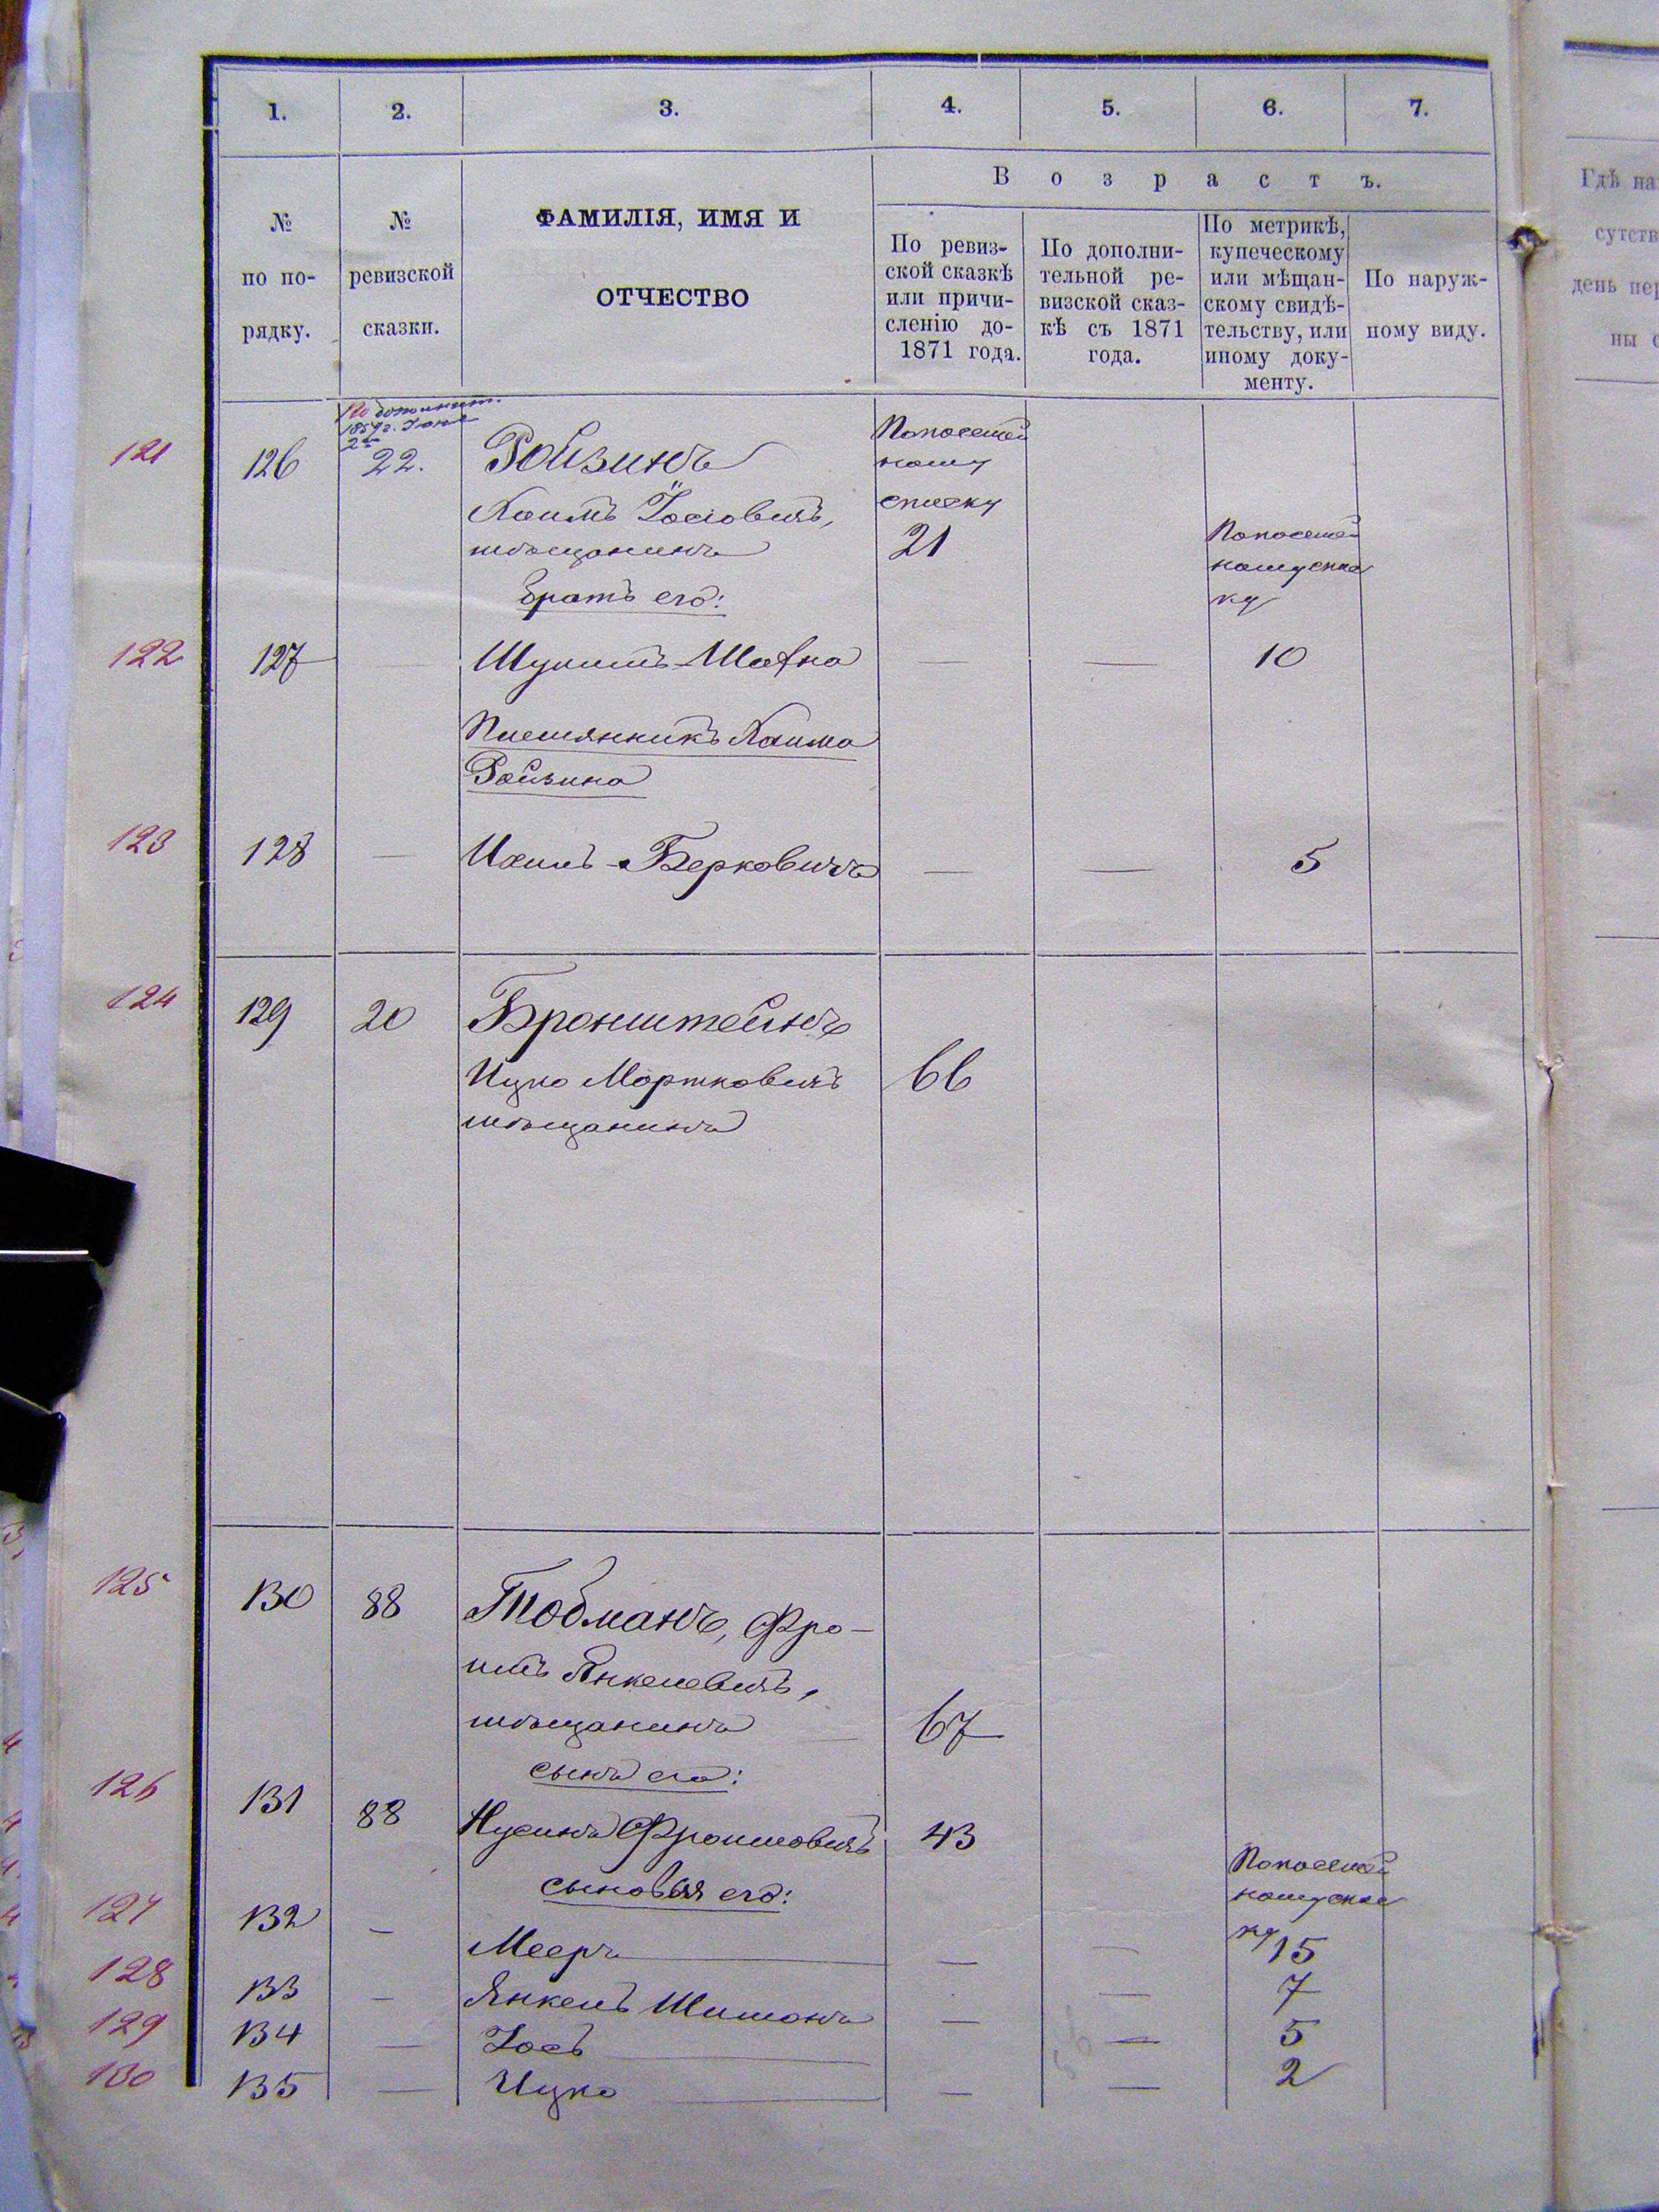 1. 2. 3. 4. 5. 6. 7.
Возрастъ.
№ по по-рядку.
№ ревизской сказки.
ФАМИЛІЯ, ИМЯ И
ОТЧЕСТВО
По ревиз-
ской сказкѣ
или причи-
сленію до-
1871 года.
По дополни-
тельной ре-
визской сказ-
кѣ съ 1871
года.
По метрикѣ,
купеческому
или мѣщан-
скому свидѣ-
тельству, или
иному доку-
менту.
По наруж-
ному виду.
Гдѣ на
сутств
день пер
ны с
По дополнит.
121 126 22. Ройзинъ
Хаимъ Іосіовичъ,
мѣщанинъ
Посемей
ному
списку
21
братъ его:
Посемей
ному спис
ку
122 127 — Шулимъ-Шафна — — 10
Племянникъ Хаима
Ройзина
123 128 — Ихилъ-Берковичъ — — 5
124 129 20 Бронштейнъ
Ицко Мортковичъ 66
мѣщанинъ
125 130 88 Тобманъ, Фро-
имъ Янкелевичъ,
мѣщанинъ 67
сынъ его:
126 131 88 Нусинъ Фроимовичъ 43
сыновья его:
Посемей
ному спис
ку
127 132 — Мееръ — — 15
128 133 — Янкель Шимонъ — 7
129 134 — Іось — — 5
130 135 — Ицко — — 2